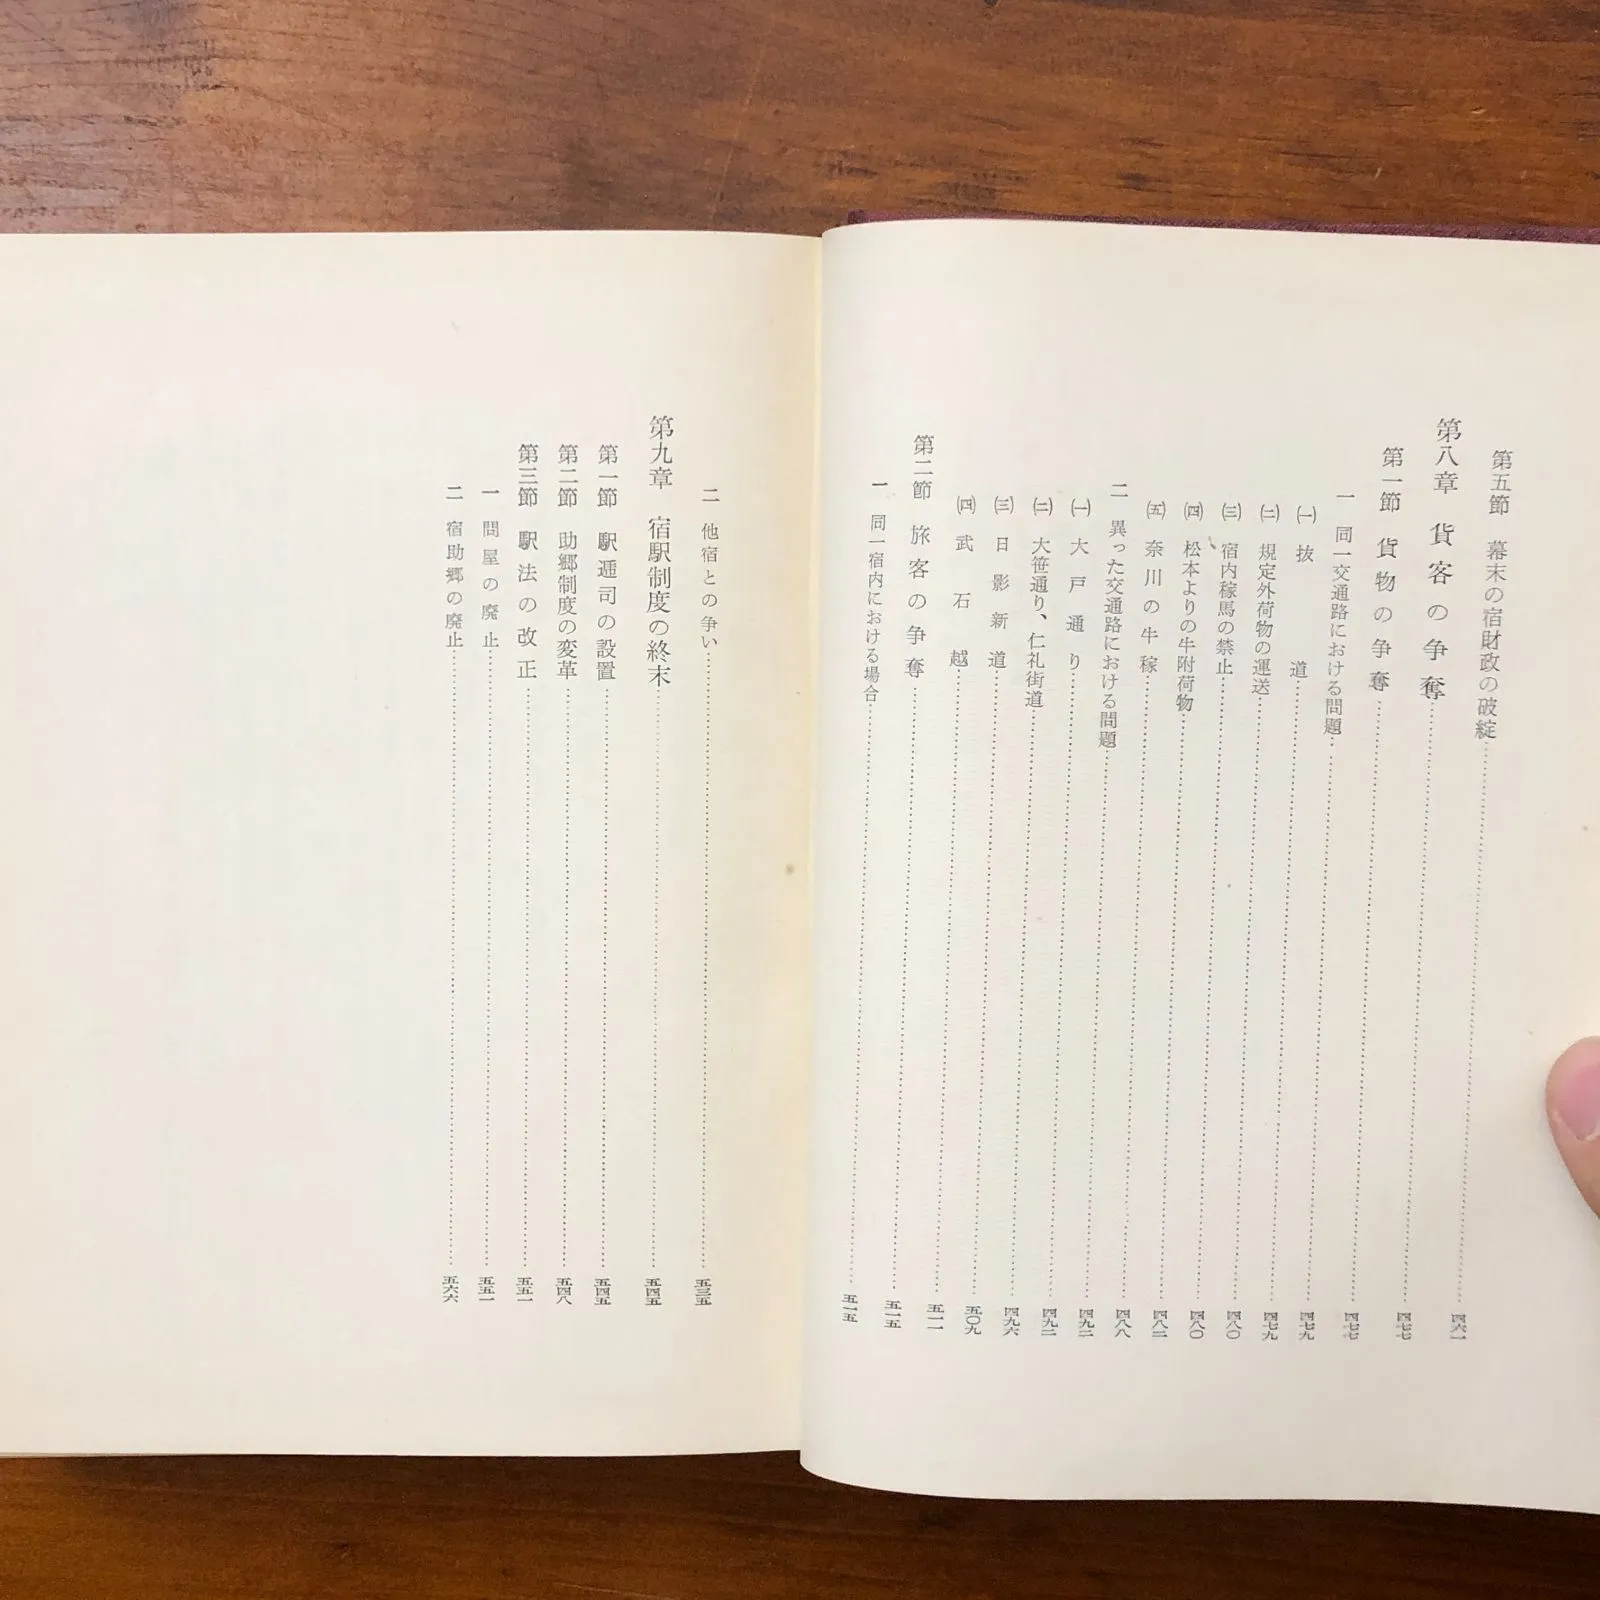 第五節 幕末の宿財政の破綻……四六一
第八章 貨客の争奪……四七七
第一節 貨物の争奪……四七七
一 同一交通路における問題……四七七
㈠ 抜道……四七九
㈡ 規定外荷物の運送……四七九
㈢ 宿内稼馬の禁止……四八〇
㈣ 松本よりの牛附荷物……四八〇
㈤ 奈川の牛稼……四八二
二 異った交通路における問題……四八八
㈠ 大戸通り……四九二
㈡ 大笹通り、仁礼街道……四九二
㈢ 日影新道……四九六
㈣ 武石越……五〇九
第二節 旅客の争奪……五一五
一 同一宿内における場合……五一五
二 他宿との争い……五三五
第九章 宿駅制度の終末……五四五
第一節 駅逓司の設置……五四五
第二節 助郷制度の変革……五四八
第三節 駅法の改正……五五一
一 問屋の廃止……五五一
二 宿助郷の廃止……五六六